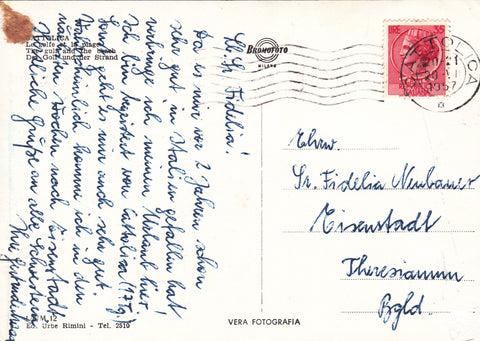 CATTOLICA
Le golfe et la plage
The gulf and the beach
Der Golf und der Strand
BROMOFOTO
MILANO
CATTOLICA
1957
Lb. Sr. Fidelia!
Da es mir vor 2 Jahren schon
sehr gut in Italien gefallen hat
verbringe ich meinen Urlaub hier.
Ich bin begeistert von Cattolica
Sonst geht es mir auch sehr gut.
Wahrscheinlich komme ich in den
nächsten Wochen nach Eisenstadt
Herzliche Grüße an alle Schwestern
Ihre
Ehrw.
Sr. Fidelia Neubauer
Eisenstadt
Theresianum
Bgld.
12
Ed. Urbe Rimini - Tel. 2310
VERA FOTOGRAFIA